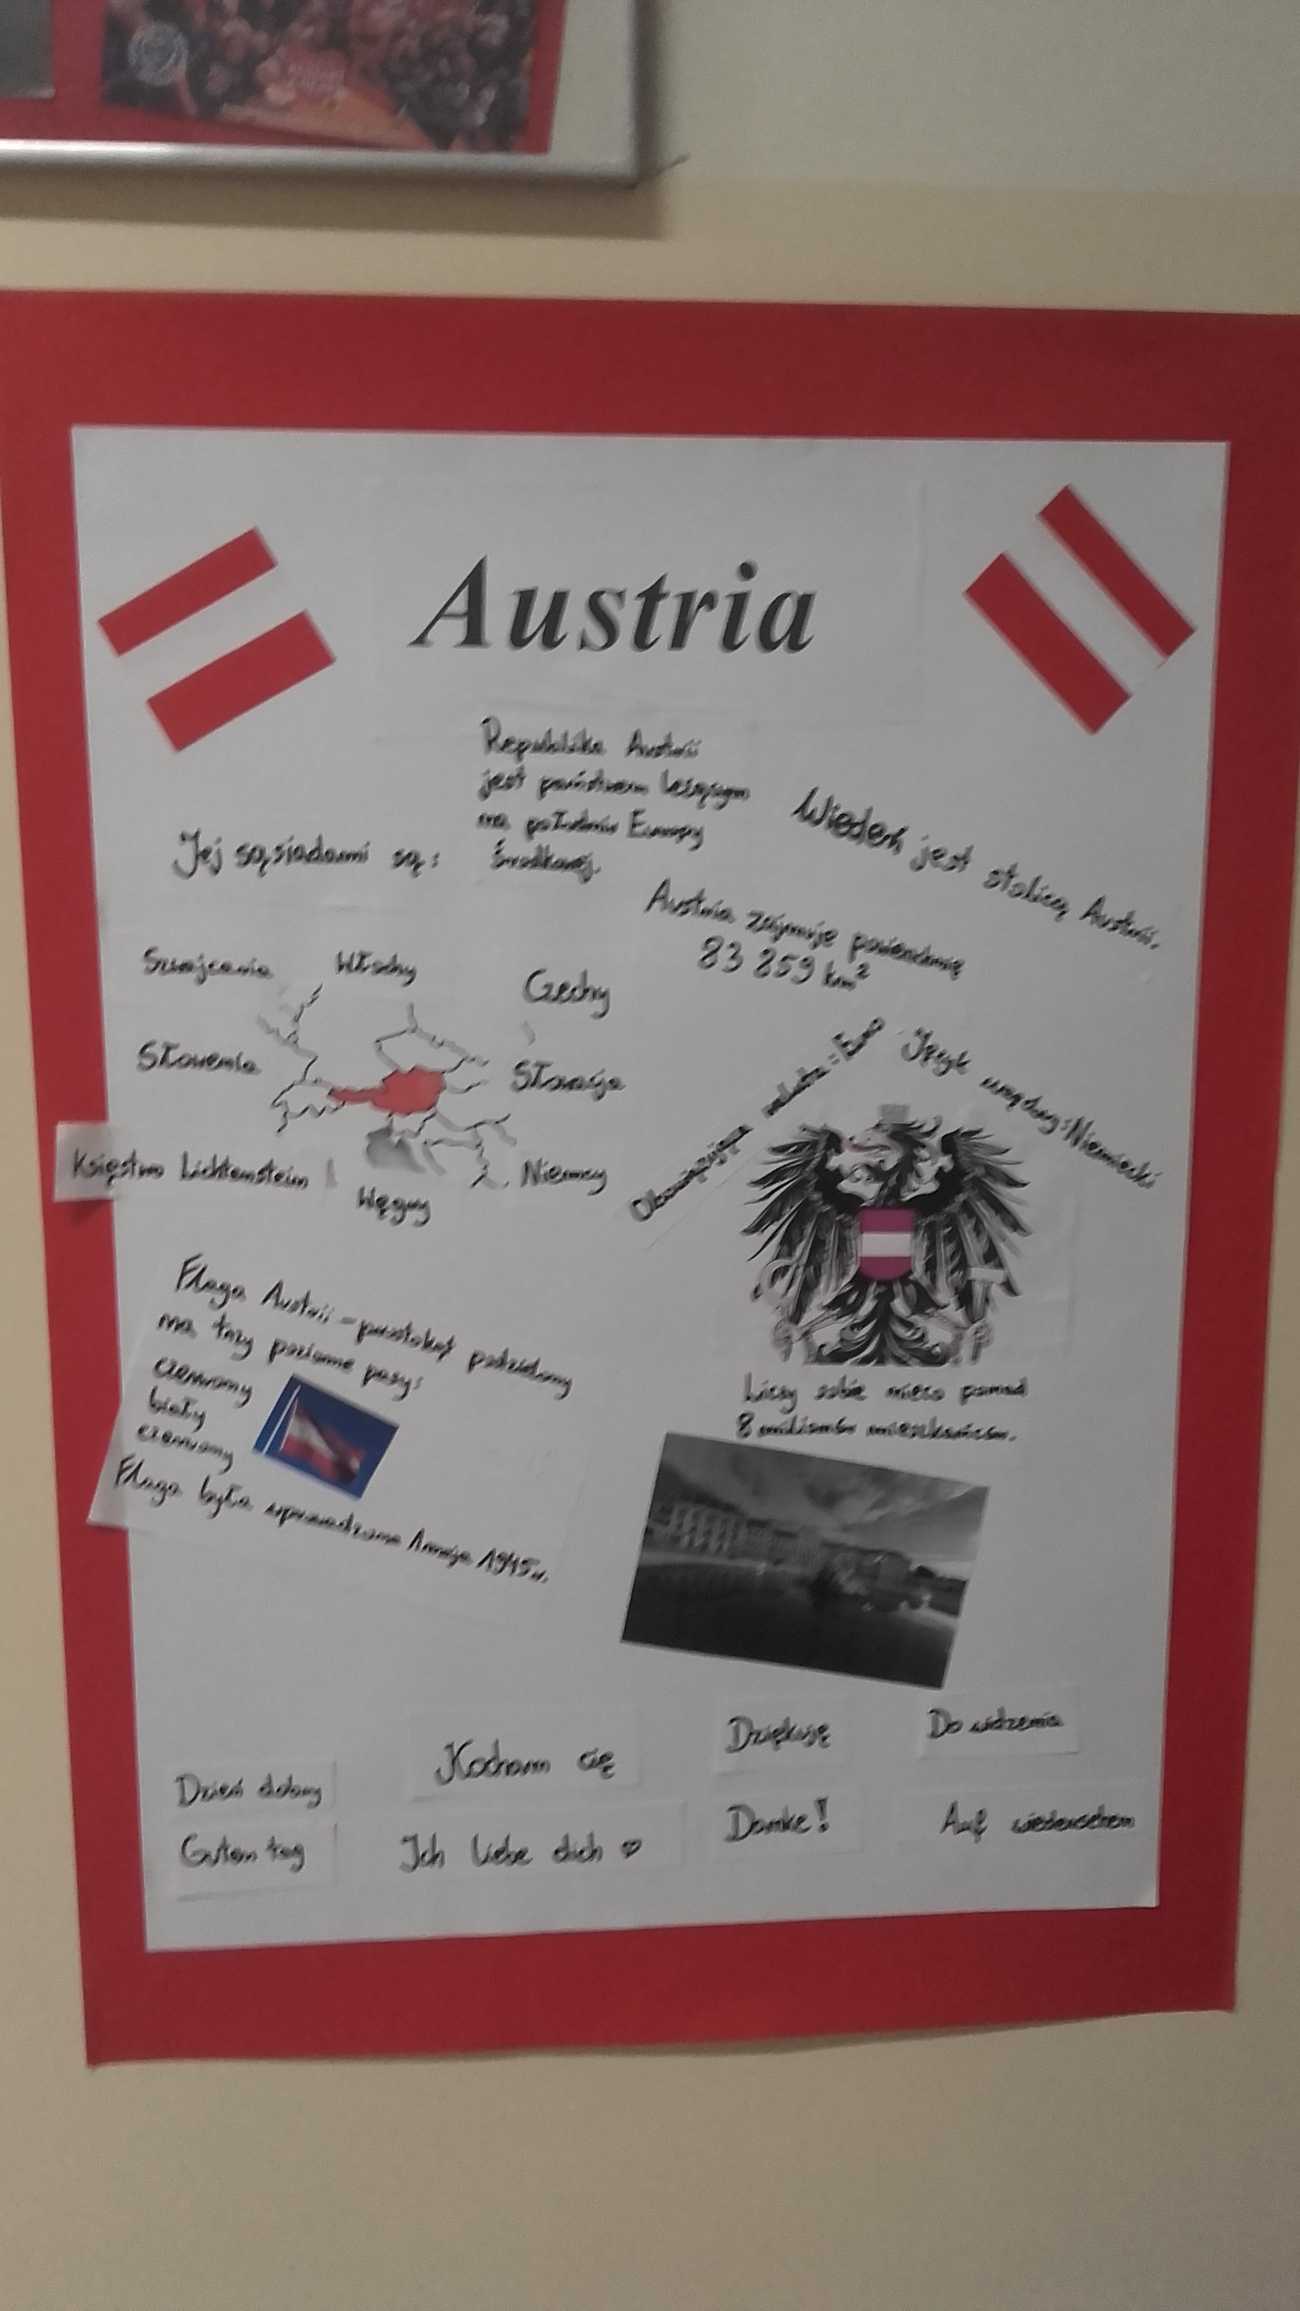 Austria
Republika Austrii
jest państwem leżącym
na południu Europy
Środkowej.
Wiedeń jest stolicą Austrii.
Jej sąsiadami są:
Austria zajmuje powierzchnię
83 859 km²
Szwajcaria
Włochy
Czechy
Słowenia
Słowacja
Księstwo Lichtenstein
Węgry
Niemcy
Obowiązująca waluta: Euro
Język urzędowy: Niemiecki
Flaga Austrii - prostokąt podzielony
na trzy poziome pasy:
czerwony
biały
czerwony
Flaga była wprowadzona 1 maja 1945r.
Liczy sobie nieco ponad
8 milionów mieszkańców.
Dzień dobry
Kocham cię
Dziękuję
Do widzenia
Guten tag
Ich liebe dich ♡
Danke!
Auf wiedersehen